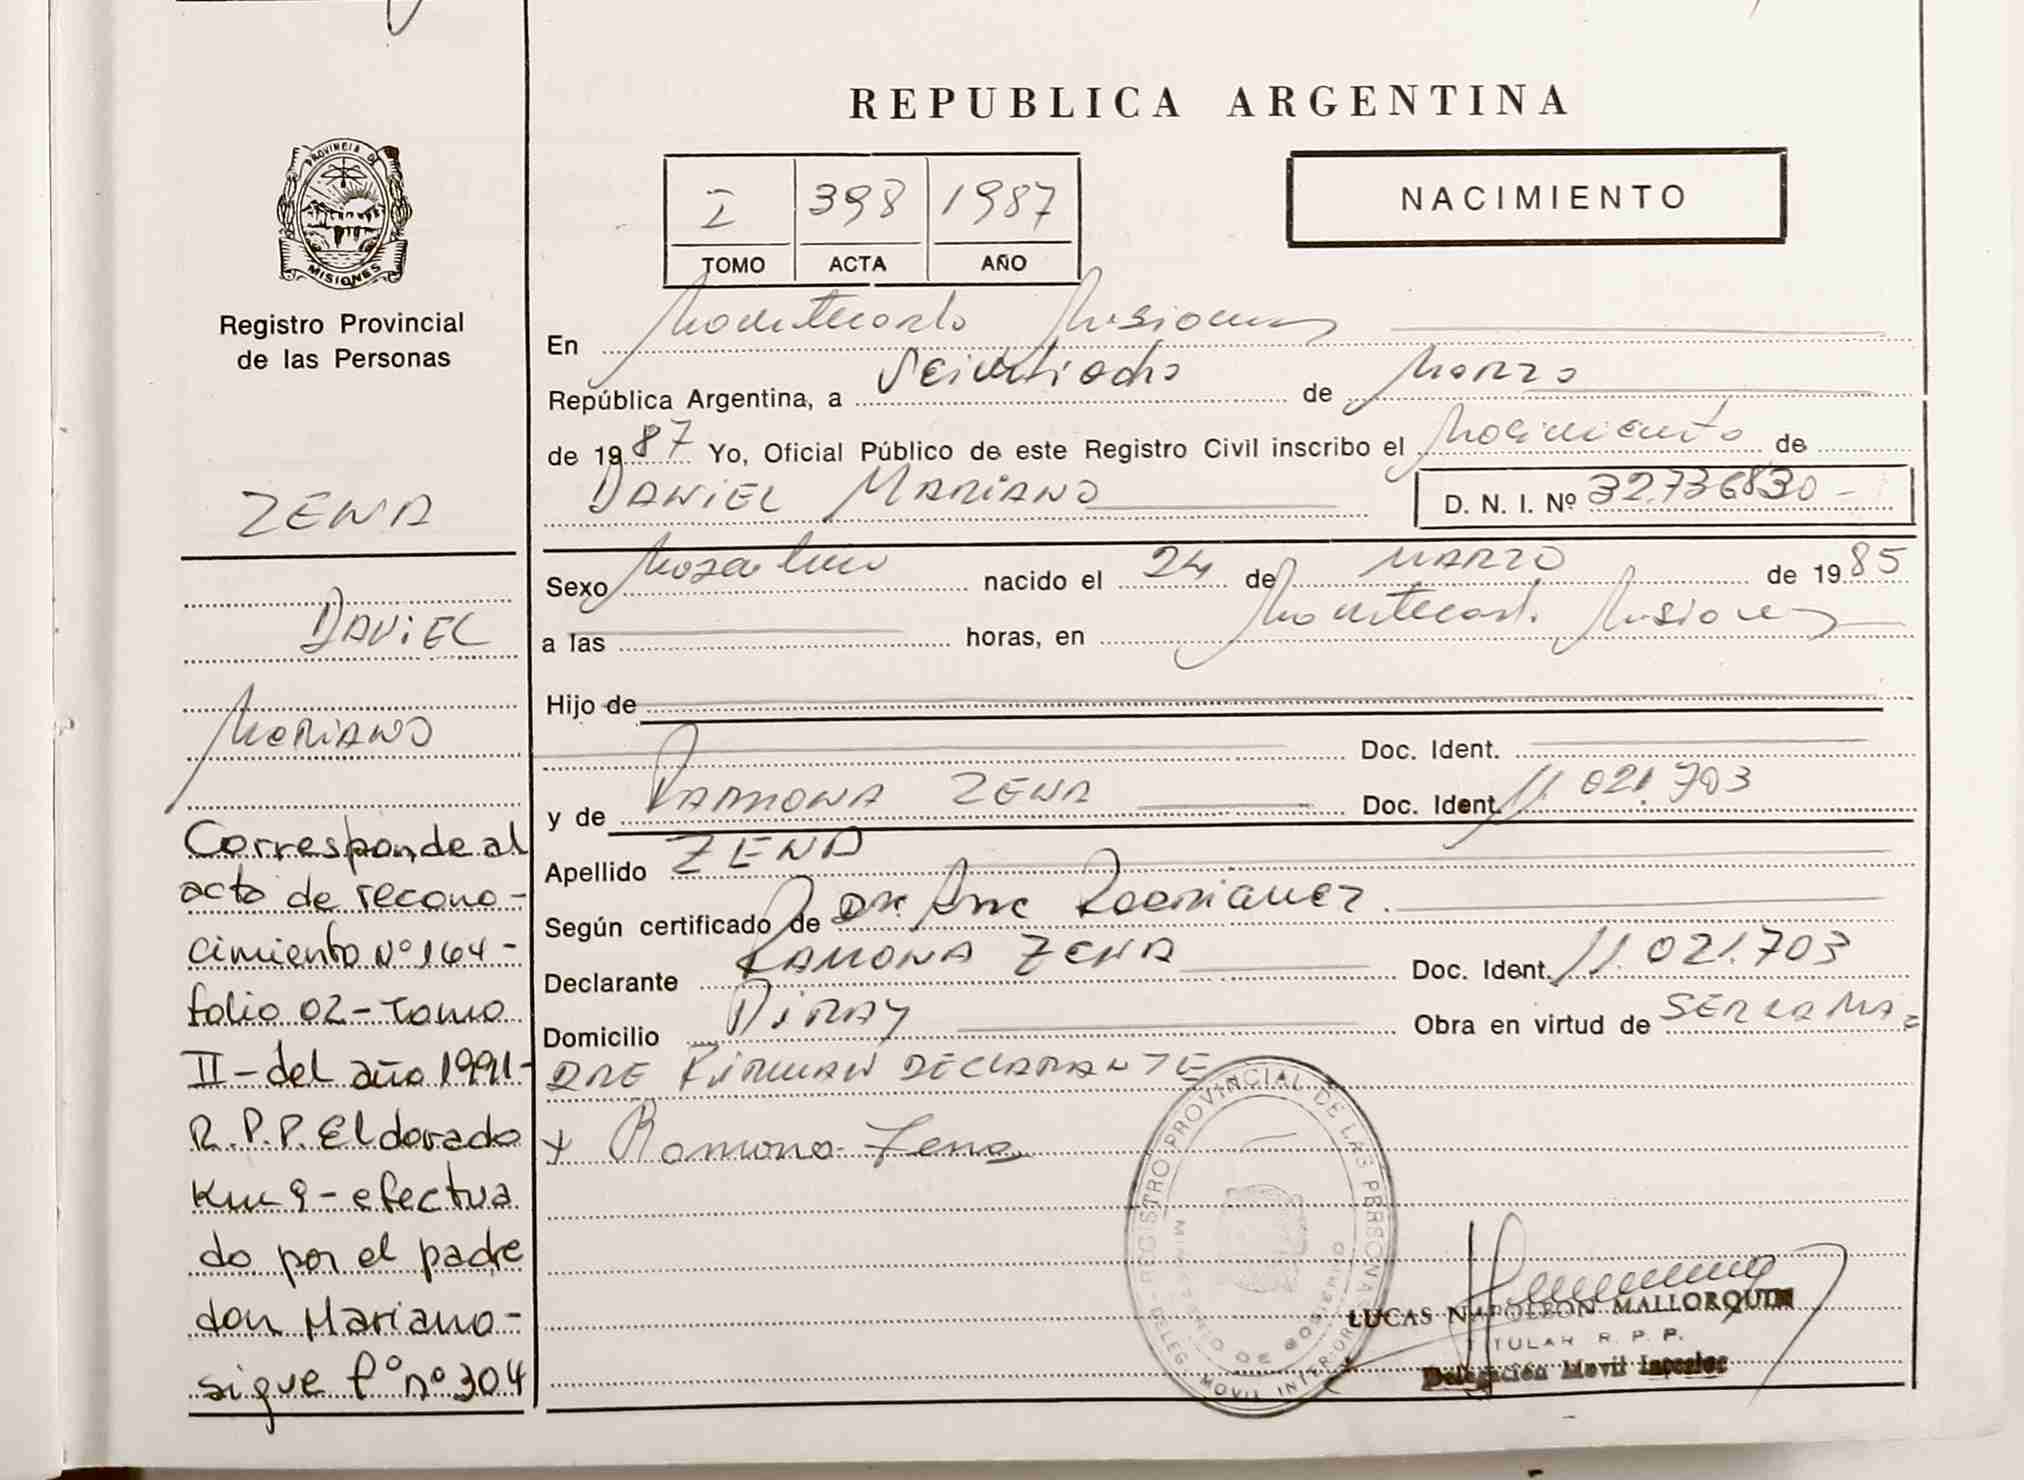 REPUBLICA ARGENTINA
I 398 1987
TOMO ACTA AÑO
NACIMIENTO
PROVINCIA DE
MISIONES
Registro Provincial
de las Personas
ZENA
DANIEL
MARIANO
Corresponde al
acta de recono-
cimiento Nº 164-
folio 02-Tomo
II-del año 1991-
R.P.P. Eldorado
Km 9-efectua
do por el padre
don Mariano-
sigue fº nº 304
En Montecarlo Misiones
República Argentina, a Veintiocho de Marzo
de 1987 Yo, Oficial Público de este Registro Civil inscribo el Nacimiento de
DANIEL MARIANO D. N. I. Nº 32.736830-
Sexo Masculino nacido el 24 de MARZO de 1985
a las horas, en Montecarlo Misiones
Hijo de
Doc. Ident.
y de RAMONA ZENA Doc. Ident. 11.021.703
Apellido ZENA
Según certificado de Rodriguez.
Declarante RAMONA ZENA Doc. Ident. 11.021.703
Domicilio PIRAY Obra en virtud de SER LA MA=
DRE FIRMAN DECLARANTE
x Ramona Zena
REGISTRO PROVINCIAL DE LAS PERSONAS
MINISTERIO DE GOBIERNO
DELEG. MOVIL INTERIOR
LUCAS NAPOLEON MALLORQUIN
TITULAR R. P. P.
Delegación Movil Interior